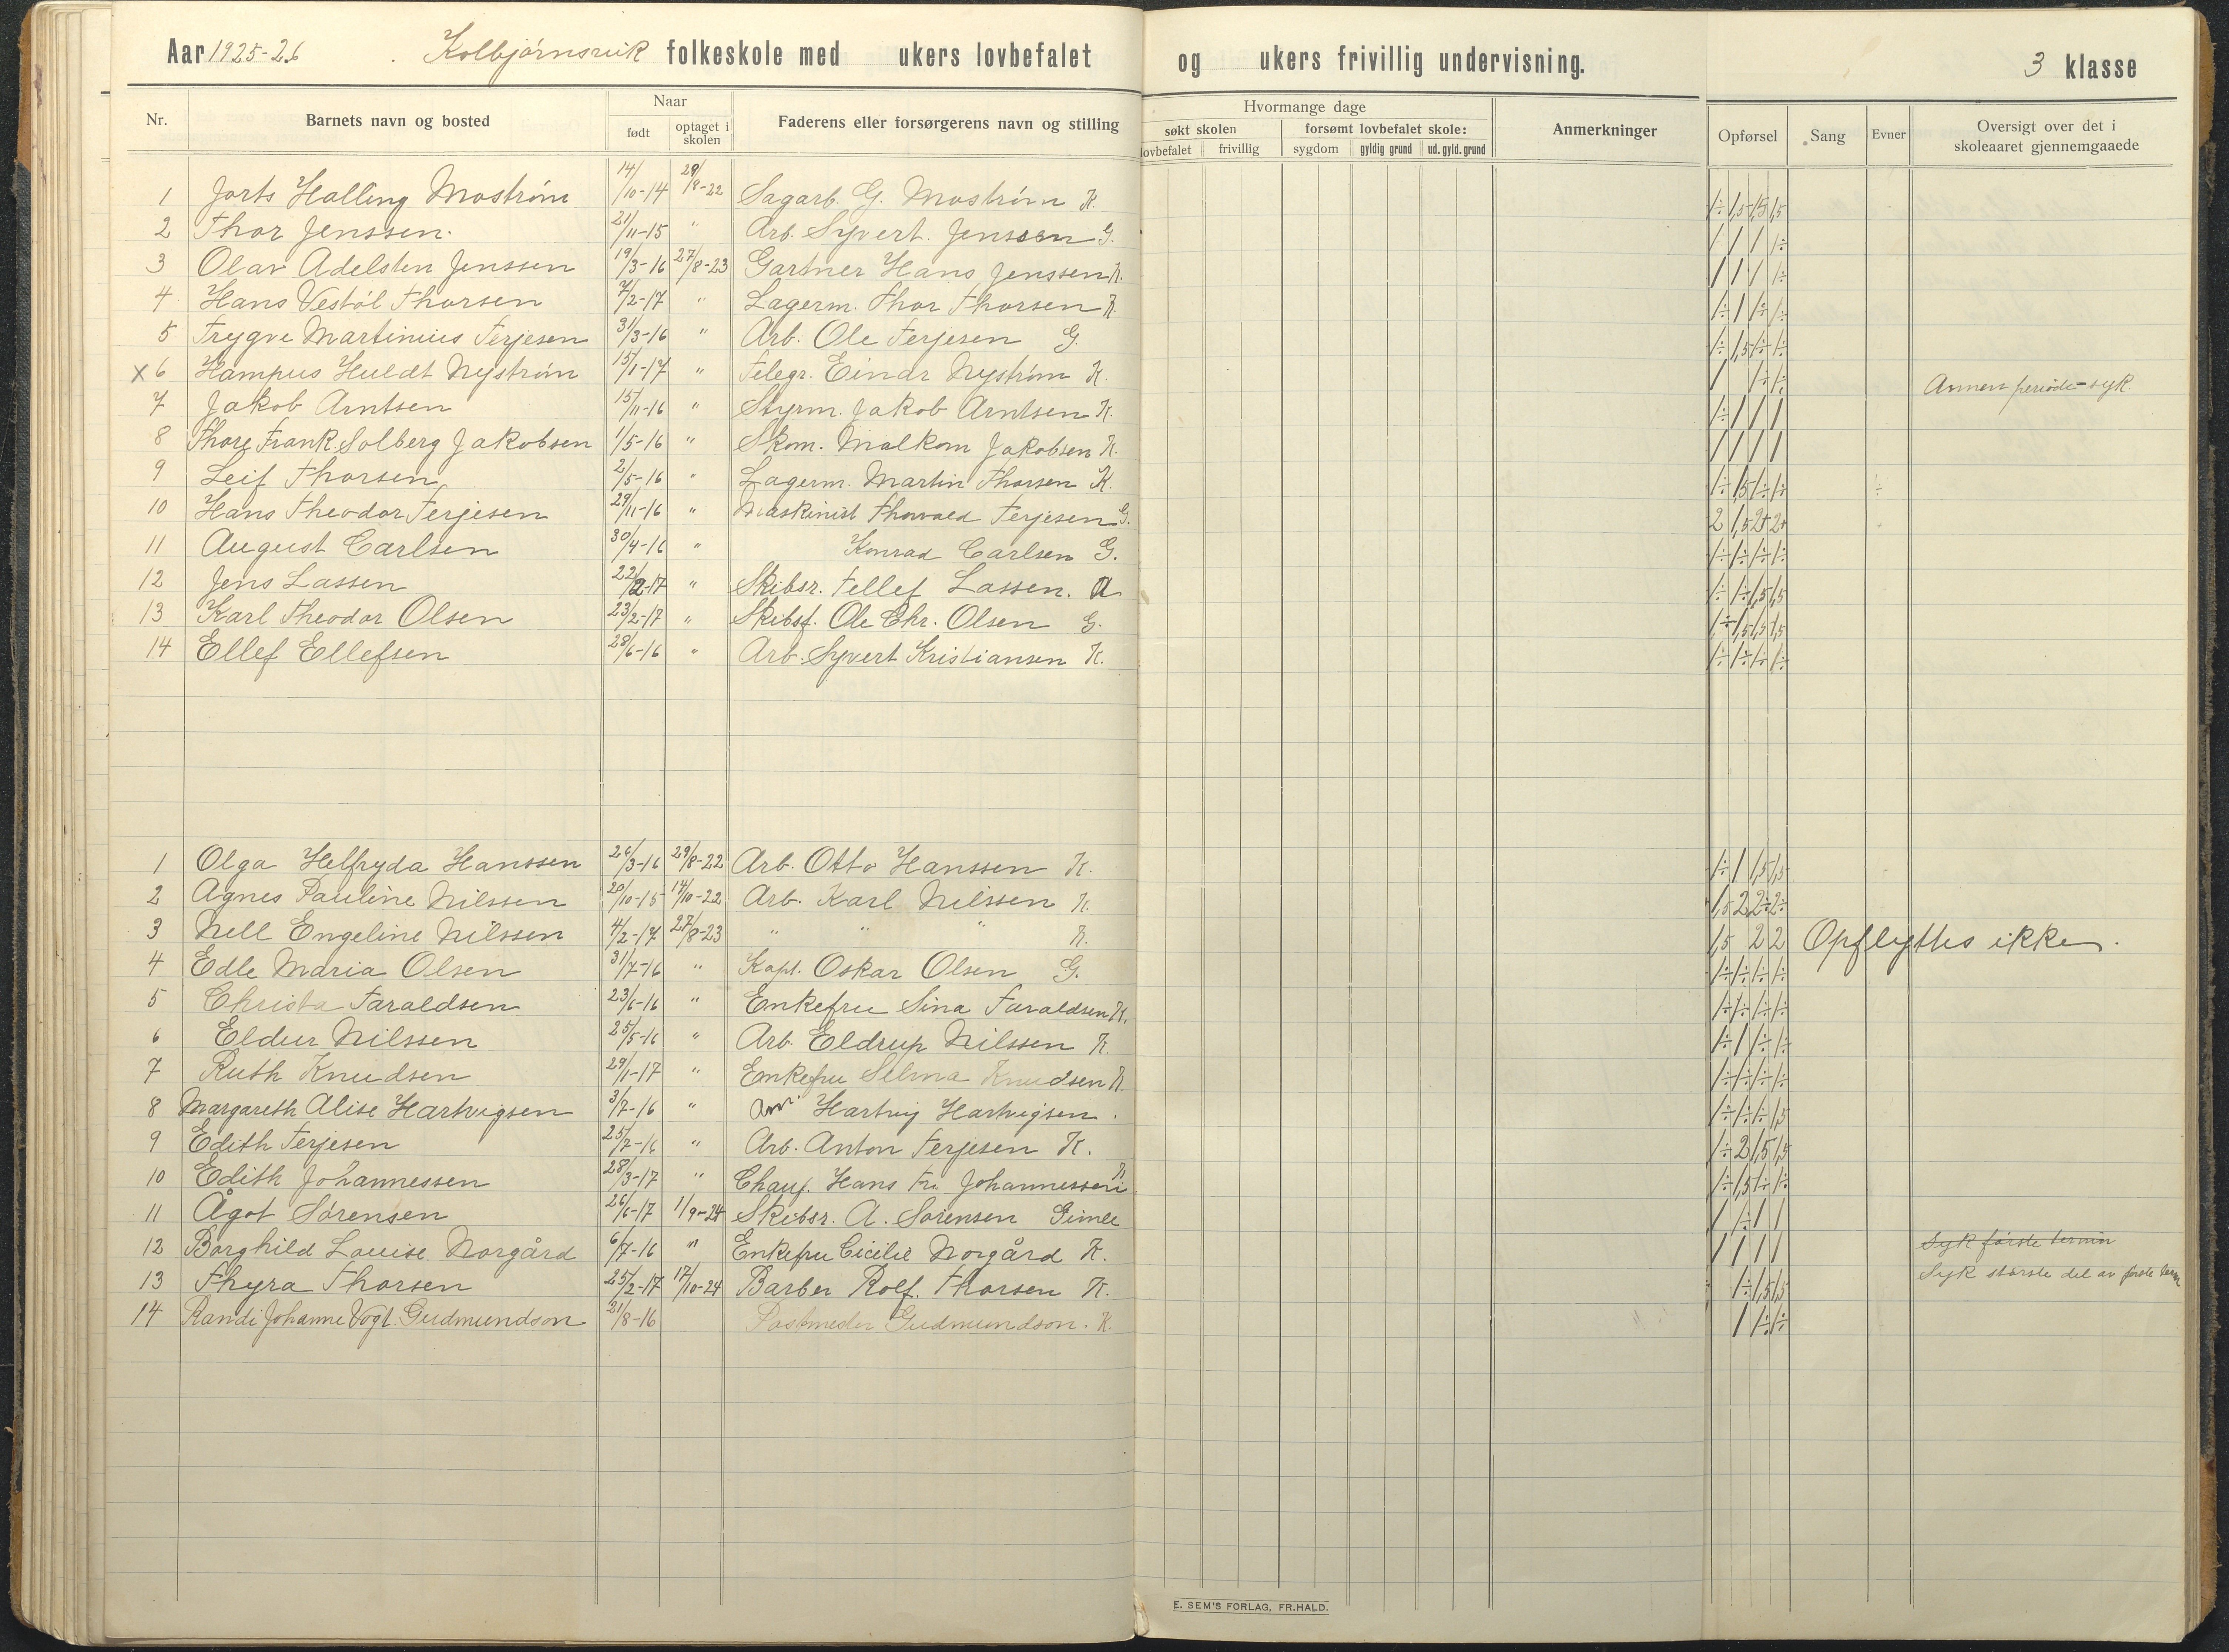 Aar 1925-26 Kolbjørnsvik folkeskole med ukers lovbefalet og ukers frivillig undervisning. 3 klasse
Nr. Barnets navn og bosted Naar født optaget i skolen Faderens eller forsørgerens navn og stilling Hvormange dage søkt skolen lovbefalet frivillig forsømt lovbefalet skole: sygdom gyldig grund ud. gyld. grund Anmerkninger Opførsel Sang Evner Oversigt over det i skoleaaret gjennemgaaede
1 Halling Mostrøm 14/10-14 29/8-22 Sagarb. G. Mostrøm K. 1÷ 1,5 1,5 1,5
2 Thor Jenssen. 21/11-15 " Arb. Syvert. Jenssen G. 1 1 1 1÷
3 Olav Adelsten Jenssen 19/3-16 27/8-23 Gartner Hans Jenssen K. 1 1 1 1÷
4 Hans Vestøl Thorsen 7/2-17 " Lagerm. Thor Thorsen K. 1÷ 1 1÷ 1÷
5 Trygve Martinius Terjesen 31/3-16 " Arb. Ole Terjesen G. 1÷ 1,5 1÷ 1÷
x 6 Hampus Huldt Nystrøm 15/1-17 " Telegr. Einar Nystrøm K. 1 1÷ 1÷ Annen periode-syk.
7 Jakob Arntsen 15/11-16 " Styrm. Jakob Arntsen K. 1÷ 1 1 1
8 Thore Frank Solberg Jakobsen 1/5-16 " Skom. Malkom Jakobsen K. 1 1 1 1
9 Leif Thorsen 2/5-16 " Lagerm. Martin Thorsen K. 1÷ 1,5 1÷ 1÷ ÷
10 Hans Theodor Terjesen 29/11-16 " Maskinist Thorvald Terjesen G. 2 1,5 2+ 2+
11 August Carlsen 30/4-16 " Konrad Carlsen G. 1÷ 1÷ 1÷ 1÷
12 Jens Lassen 22/2-17 " Skibsr. Tellef Lassen. A 1÷ 1÷ 1,5 1,5
13 Karl Theodor Olsen 23/2-17 " Skibsf. Ole Chr. Olsen G. 1÷ 1,5 1,5 1,5
14 Ellef Ellefsen 28/6-16 " Arb. Syvert Kristiansen K. 1÷ 1÷ 1÷ 1÷
1 Olga Helfryda Hanssen 26/3-16 29/8-22 Arb. Otto Hanssen K. 1÷ 1 1,5 1,5
2 Agnes Pauline Nilssen 20/10-15 14/10-22 Arb. Karl Nilssen K. 1,5 2 2÷ 2÷
3 Nell Engeline Nilssen 4/2-17 27/8-23 " " " K. 1,5 2 2 Opflyttes ikke.
4 Edle Maria Olsen 31/7-16 " Kapt. Oskar Olsen G. 1÷ 1÷ 1÷ 1÷
5 Christa Taraldsen 23/6-16 " Enkefru Sina Taraldsen K. 1÷ 1÷ 1÷ 1÷
6 Eldur Nilssen 25/5-16 " Arb. Eldrup Nilssen K. 1÷ 1 1÷ 1÷
7 Ruth Knudsen 29/1-17 " Enkefru Selma Knudsen K. 1÷ 1÷ 1÷ 1÷
8 Margareth Alise Hartvigsen 3/7-16 " Hartvig Hartvigsen. 1÷ 1÷ 1÷ 1,5
9 Edith Terjesen 25/7-16 " Arb. Anton Terjesen K. 1÷ 2 1,5 1,5
10 Edith Johannessen 28/3-17 " Chauf. Hans Fr. Johannessen K 1÷ 1,5 1÷ 1÷
11 Ågot Sørensen 26/6-17 1/9-24 Skibsr. A. Sørensen Gimle 1 1÷ 1 1
12 Borghild Louise Norgård 6/7-16 " Enkefru Cicilie Norgård K. 1 1 1 1 Syk første termin
13 Thyra Thorsen 25/2-17 17/10-24 Barber Rolf. Thorsen K. 1÷ 1,5 1,5 Syk største del av første term
14 Randi Johanne Vogt. Gudmundson 21/8-16 Postmester Gudmundson. K. 1 1÷ 1÷
E. SEM'S FORLAG, FR.HALD.